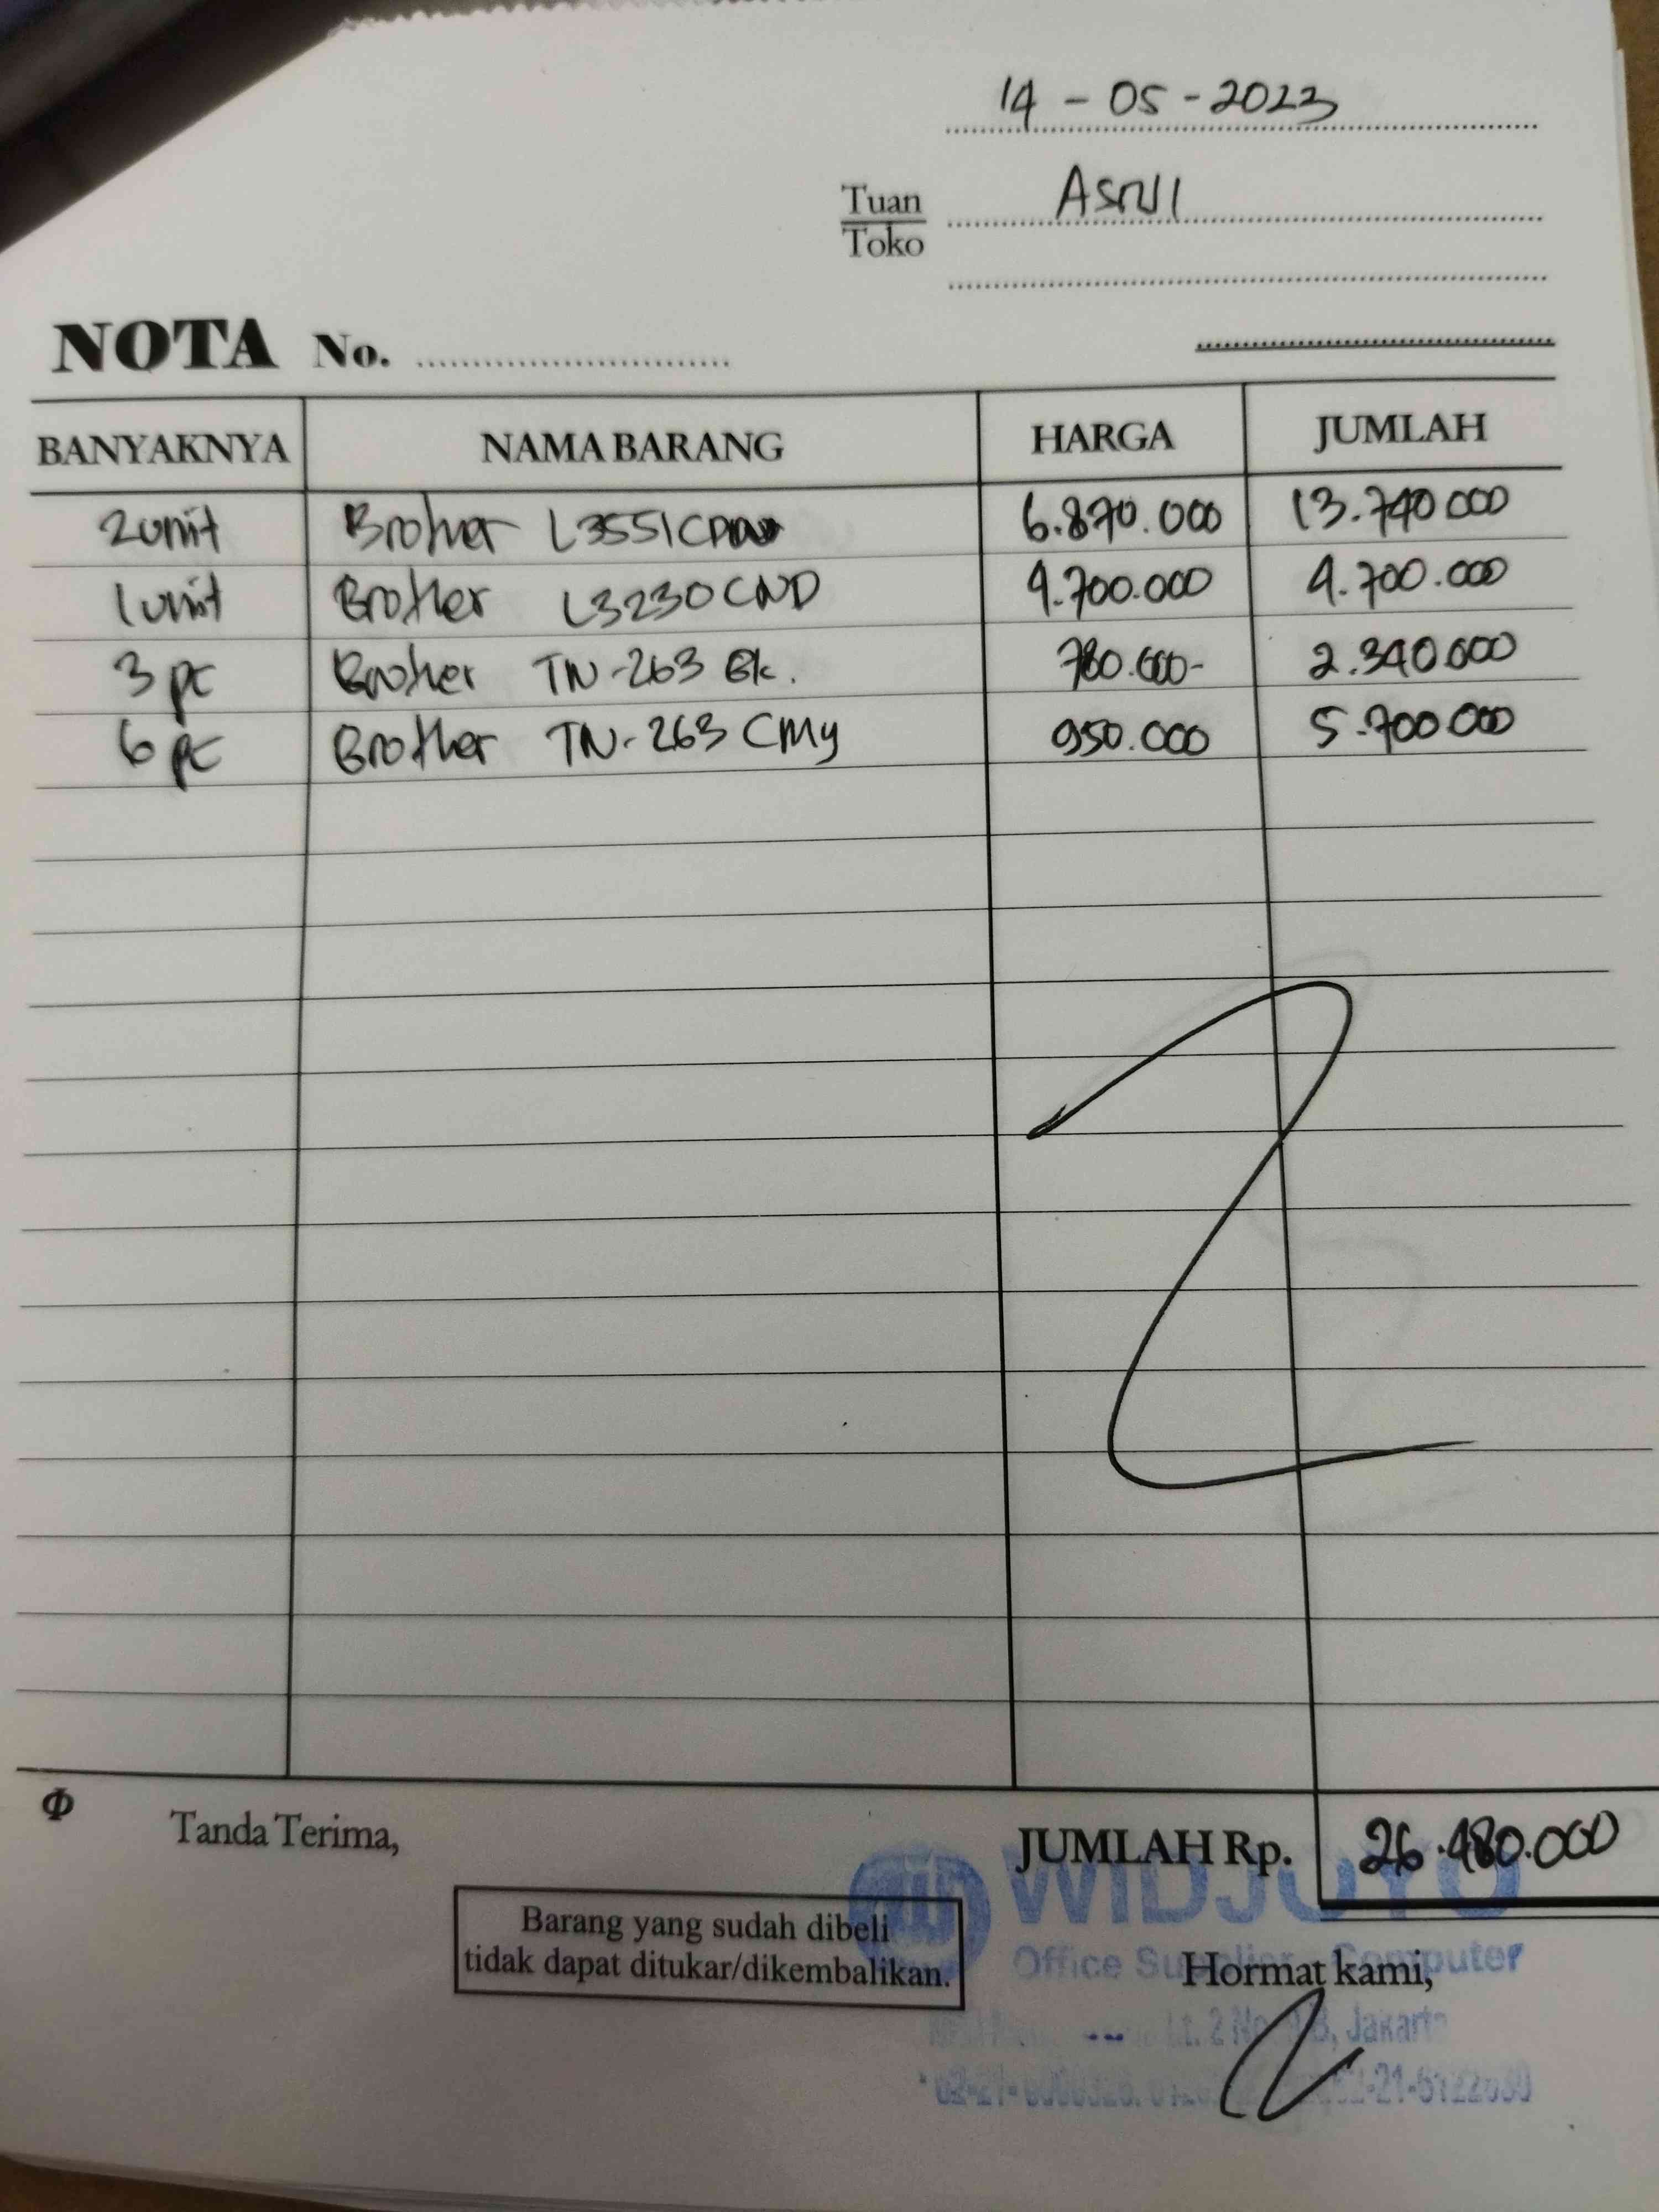 14 - 05 - 2023
Tuan Asrul
Toko
NOTA No.
BANYAKNYA NAMA BARANG HARGA JUMLAH
2 unit Brother L3551CDW 6.870.000 13.740.000
1 unit Brother L3230CND 4.700.000 4.700.000
3 pc Brother TN-263 Bk. 780.000- 2.340.000
6 pc Brother TN-263 CMy 950.000 5.700.000
Tanda Terima,
JUMLAH Rp. 26.480.000
WIDJOYO
Barang yang sudah dibeli
tidak dapat ditukar/dikembalikan.
Office Supplier Computer
Hormat kami,
Lt. 2 Jakarta